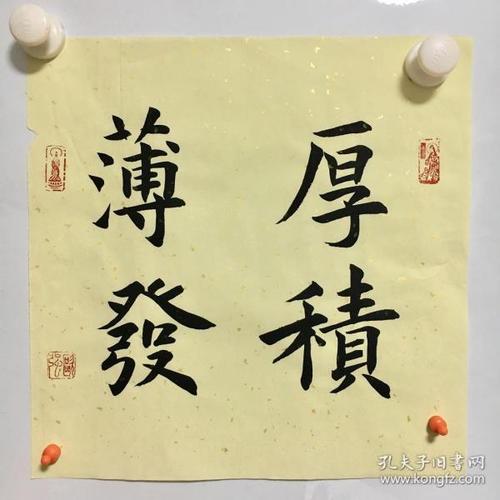 厚積
薄發
孔夫子旧书网
www.kongfz.com